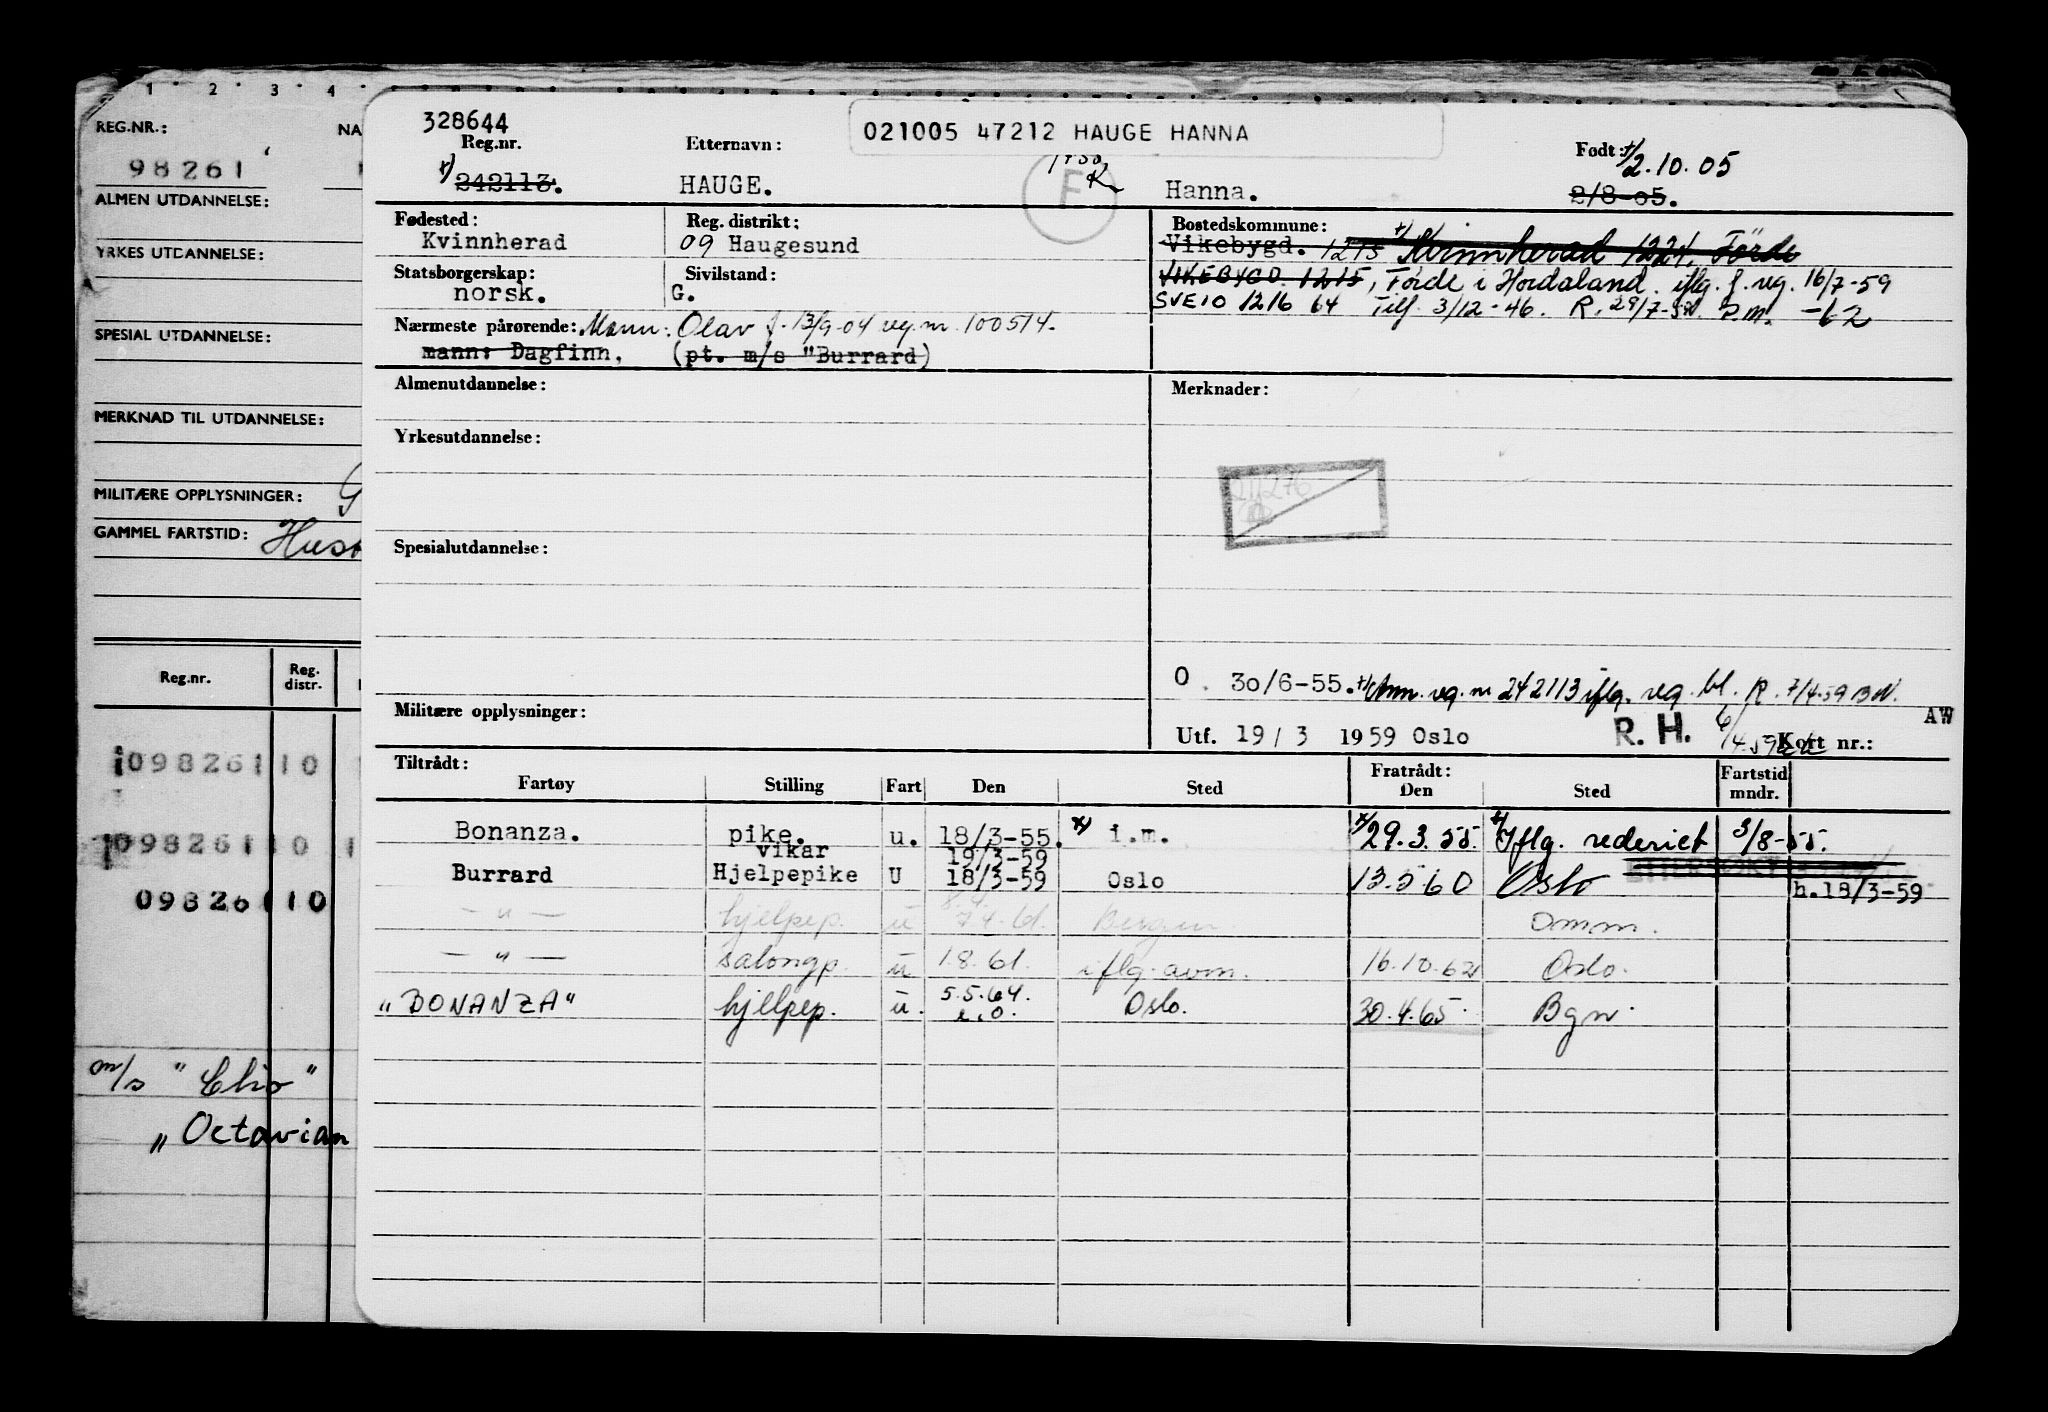 1 2 3 4
REG.NR.: NA
98261
ALMEN UTDANNELSE:
YRKES UTDANNELSE:
SPESIAL UTDANNELSE:
MERKNAD TIL UTDANNELSE:
MILITÆRE OPPLYSNINGER: G
GAMMEL FARTSTID: Hus
Reg.nr. Reg. distr.
09826110
09826110 1
09826110
m/s "Clio"
„ Octavian
328644
021005 47212 HAUGE HANNA
Reg.nr. Etternavn: Født: +/2.10.05
+/ 242113. HAUGE. F K Hanna. 2/8-05.
Fødested: Reg. distrikt: Bostedskommune:
Kvinnherad 09 Haugesund Vikebygd. 1215 +/ Kvinnherad 1224, Førde
Statsborgerskap: Sivilstand: VIKEBYGD 1215, Førde i Hordaland. iflg. f. reg. 16/7-59
norsk. G. SVEIO 1216 64 Tilf. 3/12-46. R. 29/7-59. P.M. -62
Nærmeste pårørende: Mann: Olav f. 13/9-04 reg.nr. 100514.
mann: Dagfinn, (pt. m/s "Burrard)
Almenutdannelse: Merknader:
Yrkesutdannelse:
Spesialutdannelse:
O. 30/6-55. +/ Ann. reg.nr 242113 iflg. reg. bl. R. 7/4-59 BN.
Militære opplysninger: AW
Utf. 19/3 1959 Oslo R. H. 6/4.59 Kort nr.:
Tiltrådt: Fratrådt: Fartstid
Fartøy Stilling Fart Den Sted Den Sted mndr.
Bonanza. pike. u. 18/3-55. x) i.m. +/29.3.55. +/Iflg. rederiet 3/8-55.
vikar 19/3-59
Burrard Hjelpepike U 18/3-59 Oslo 13.5 60 Oslo h.18/3-59
8.4.
— " — hjelpep. u 7.4.61. Bergen Omm.
— " — salongp. u 1.8.61. iflg. avm. 16.10.62 Oslo.
„BONANZA" hjelpep. u. 5.5.64. Oslo. 30.4.65. Bgn.
e.o.